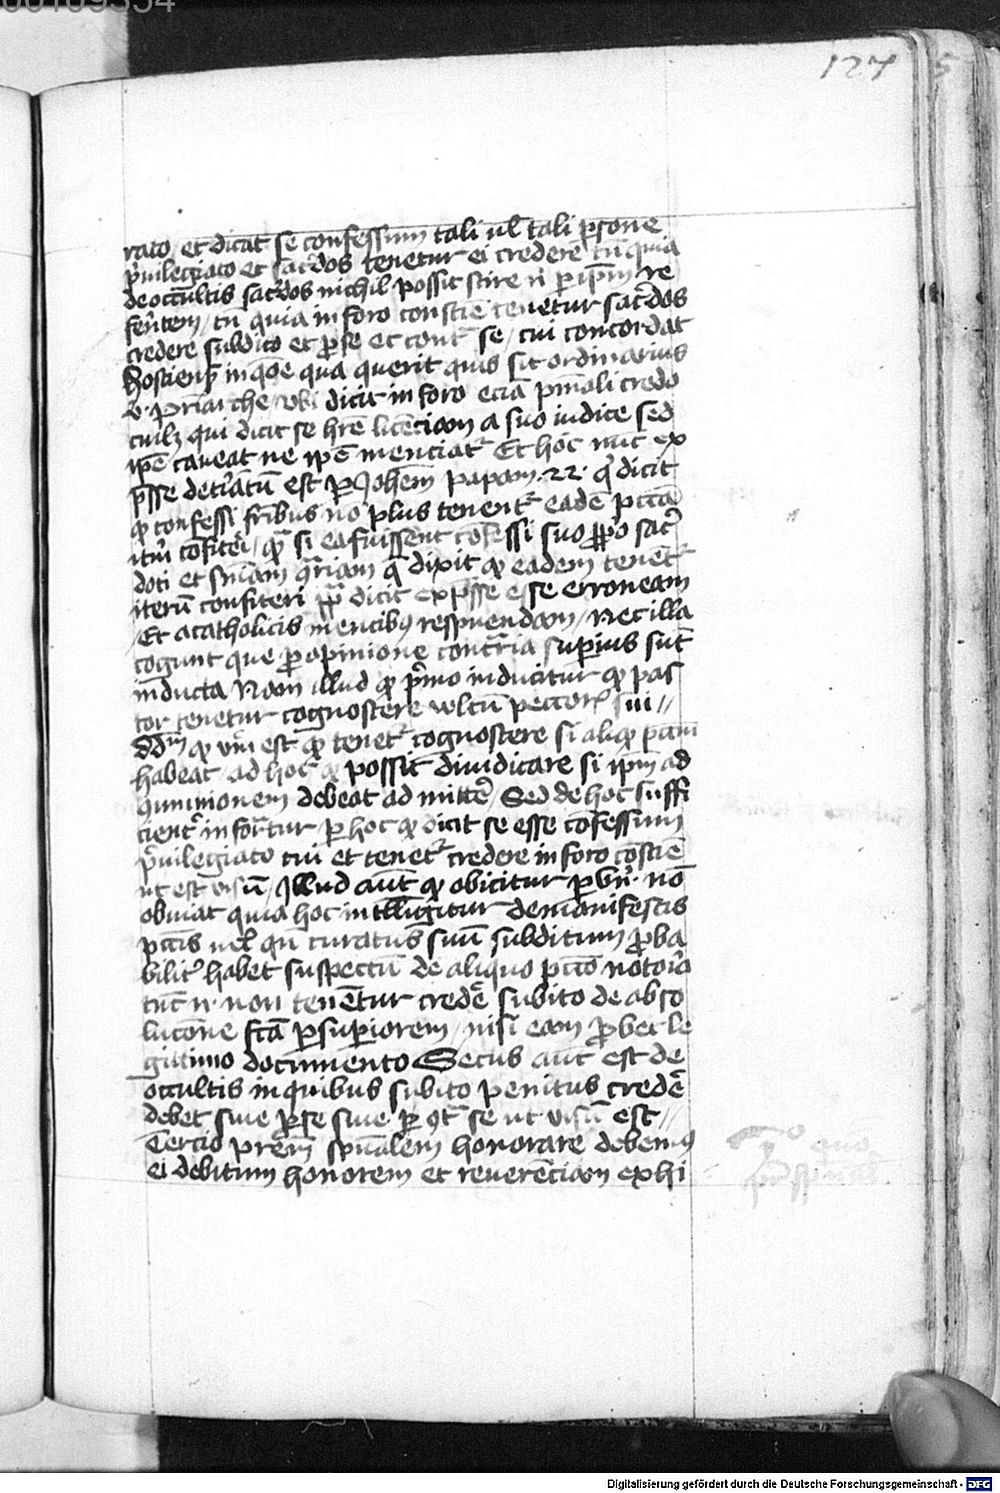 127
rato et dicat se confessum tali ul tali psone
puilegiato et sacdos tenetur ei credere tu quia
de occultis sacdos nichil possit scire n p ipm re
ferentem tu quia in foro conscie tenetur sacdos
credere subdito et pro se et cont se cui concordat
hostiens in qua querit quis sit ordinarius
dicit in foro ecia credo
cuilz qui dicit se hre licenciam a suo iudice sed
ipe caveat ne ipe menciat Et hoc nuc ex
psse detiatum est p Johem papam 22 q dicit
q confessi fribus no plus tenent eade pcca
itru cofiteri q si ea fuissent cofessi suo pprio sac
doti et sniam griam q dixit q eadem tenet
iterum confiteri dicit expsse esse erroneam
Et a catholicis mentibus respuendam Nec illa
cogunt que p opinione contria superius sut
inducta Nam illud q primo inducitur q pas
tor tenetur cognoscere vultum peccoris sui
ddm q vm est q tenet cognoscere si aliq pccm
habeat ad hoc q possit diiudicare si ipm ad
gmunionem debeat admitte Sed de hoc suffi
cient informtur p hoc q dicit se esse cofessum
puilegiato cui et tenet credere in foro coscie
ut est visum Illud aut q obicitur no
obviat quia hoc intelligitur de manifestis
pccis vel qn curatus suum subditum proba
bilit habet suspectum de aliquo pcco notorio
tuc n non tenetur crede subito de abso
lucone fca p superiorem nisi eam probet le
gittimo documento Secus aut est de
occultis in quibus subito penitus crede
debet sive p se sive p gt se ut visum est
Tercio prem spualem honorare debemus
ei debitum honorem et reverenciam exhi
Digitalisierung gefördert durch die Deutsche Forschungsgemeinschaft - DFG